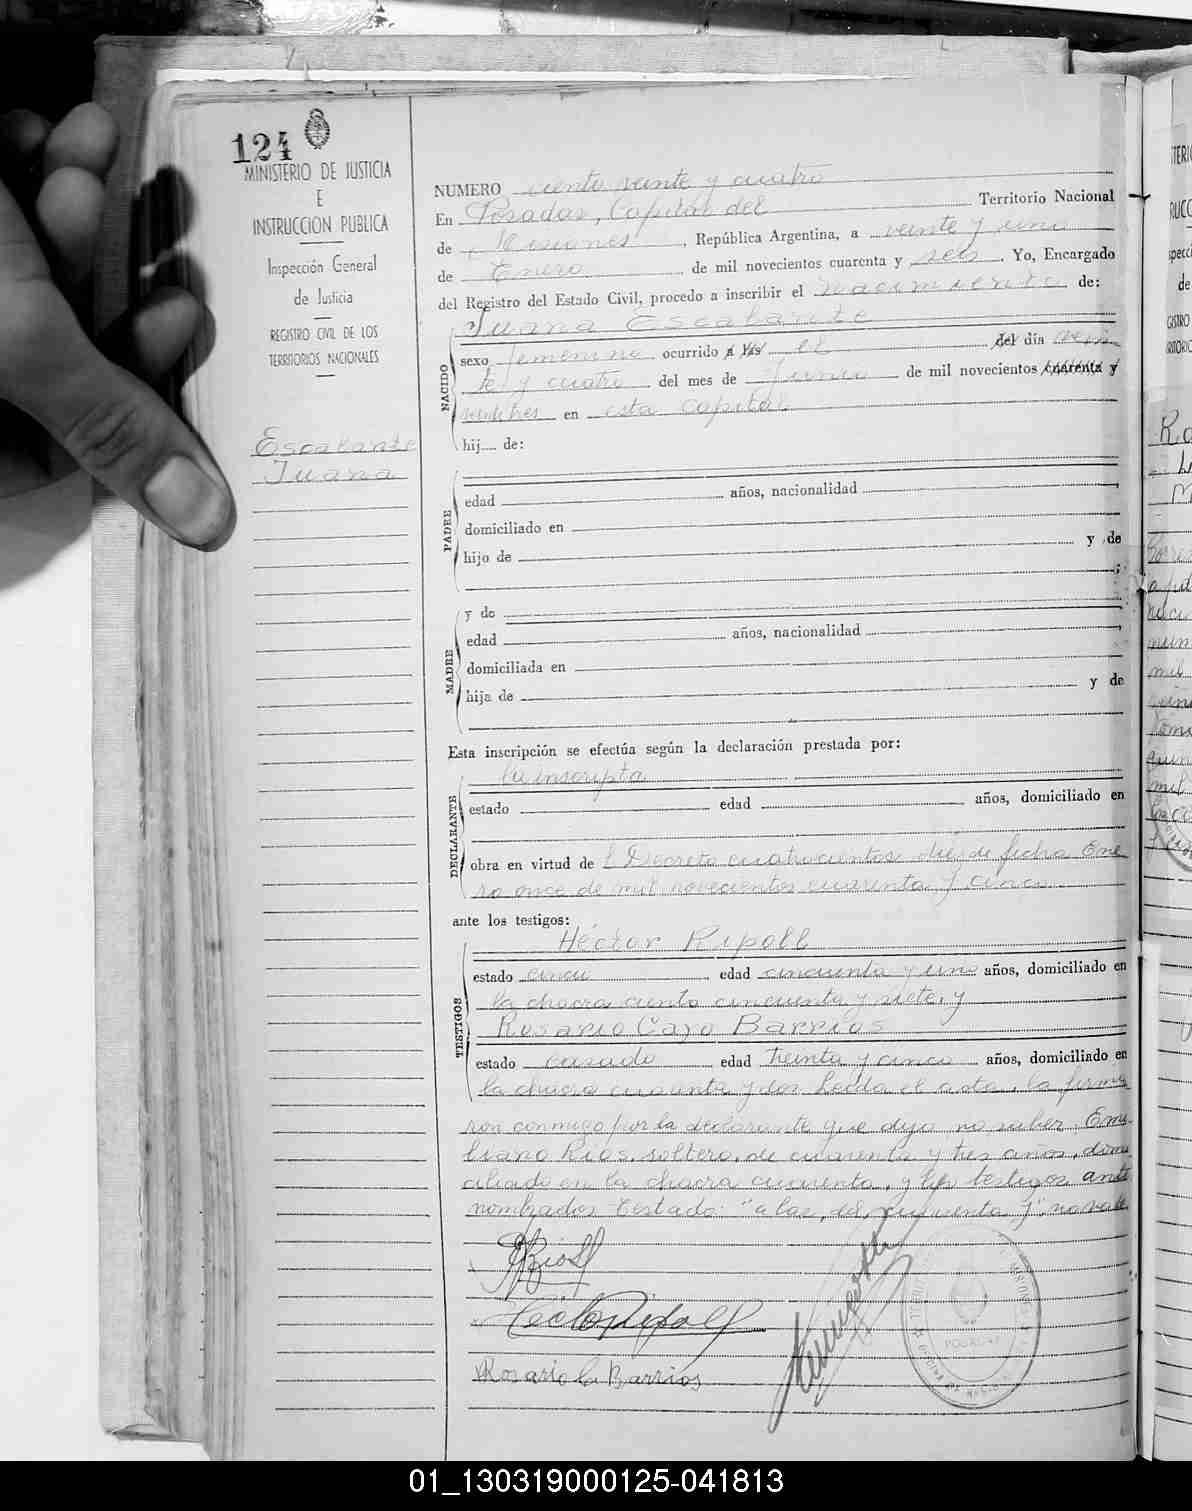 124
MINISTERIO DE JUSTICIA
E
INSTRUCCION PUBLICA
Inspección General
de Justicia
REGISTRO CIVIL DE LOS
TERRITORIOS NACIONALES
Escalante
Juana
NUMERO ciento veinte y cuatro
En Posadas, Capital del Territorio Nacional
de Misiones, República Argentina, a veinte y uno
de Enero de mil novecientos cuarenta y seis. Yo, Encargado
del Registro del Estado Civil, procedo a inscribir el nacimiento de:
Juana Escalante
NACIDO
sexo femenino ocurrido a las el del día vein
te y cuatro del mes de Junio de mil novecientos cuarenta y
veintitres en esta capital
hij de:
PADRE
edad años, nacionalidad
domiciliado en
hijo de y de
;
MADRE
y de
edad años, nacionalidad
domiciliada en
hija de y de
Esta inscripción se efectúa según la declaración prestada por:
la inscripta
DECLARANTE
estado edad años, domiciliado en
obra en virtud de l Decreto cuatrocientos diez de fecha Ene
ro once de mil novecientos cuarenta y cinco
ante los testigos:
TESTIGOS
Héctor Ripoll
estado edad cincuenta y uno años, domiciliado en
la chacra ciento cincuenta y siete, y
Rosario Cazo Barrios
estado casado edad treinta y cinco años, domiciliado en
la chacra cuarenta y dos. Leida el acta, la firma
ron conmigo por la declarante que dijo no saber, Emi
liano Rios, soltero, de cuarenta y tres años, domi
ciliado en la chacra cuarenta, y los testigos ante
nombrados Testado: "a las, del, cuarenta y": no vale
Hector Ripoll
Rosario C. Barrios
POSADAS
01_130319000125-041813